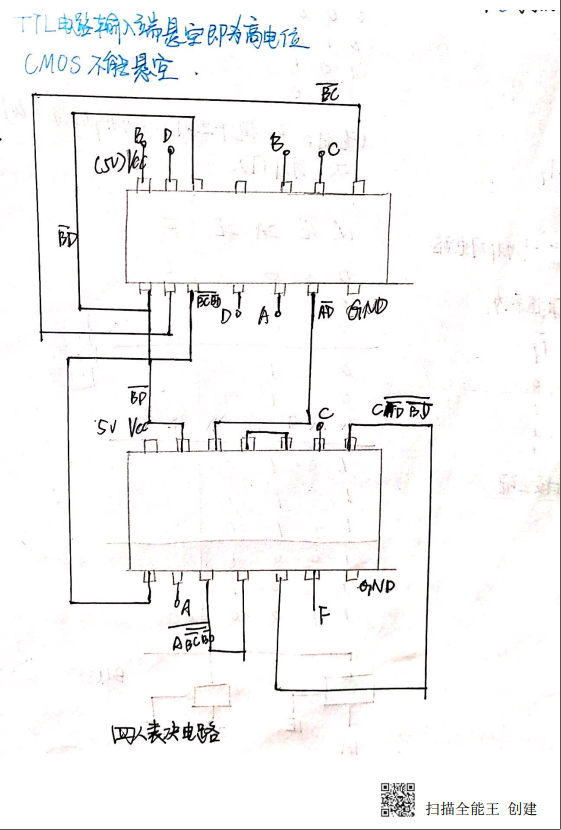 TTL电路输入端悬空即为高电位
CMOS不能悬空.
B̅C̅
B D B C
(5V) Vcc
B̅D̅
D A A̅D̅ GND
B̅D̅
5V Vcc C
GND
A F
四人表决电路
扫描全能王 创建